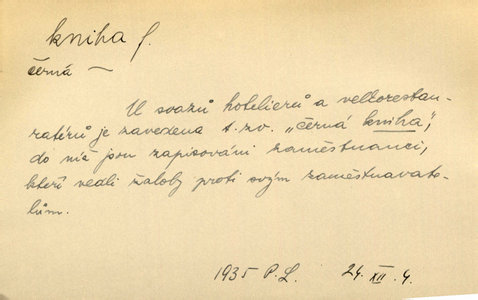 kniha f.
černá —
U svazů hotelierů a velkorestau-
ratérů je zavedena t. zv. „černá kniha“,
do níž jsou zapisováni zaměstnanci,
kteří vedli žaloby proti svým zaměstnavate-
lům.
1935 P. L. 24. XII. 4.